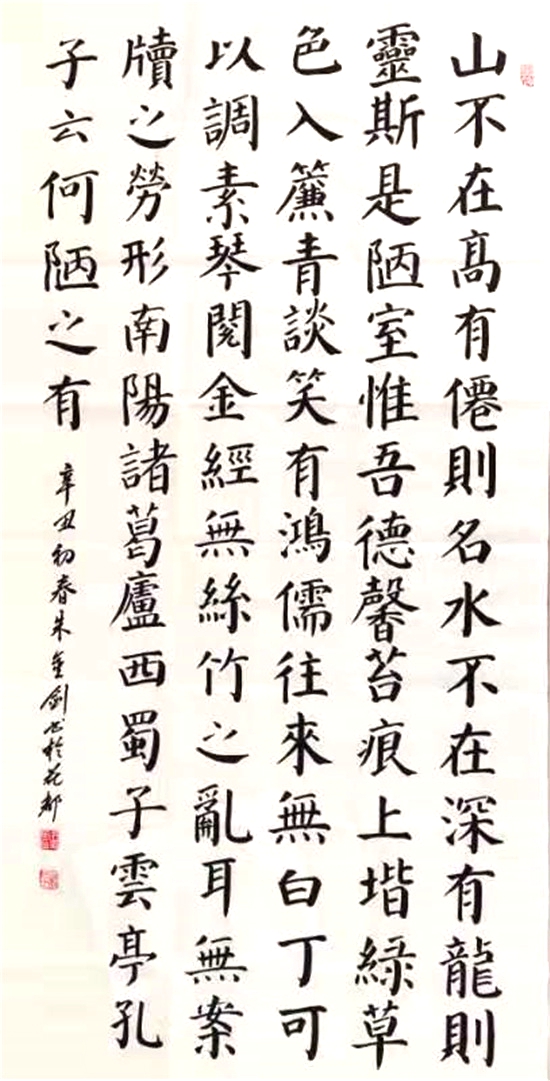 山不在髙有僊則名水不在深有龍則
靈斯是陋室惟吾德馨苔痕上堦綠草
色入簾青談笑有鴻儒往來無白丁可
以調素琴閱金經無絲竹之亂耳無案
牘之勞形南陽諸葛廬西蜀子雲亭孔
子云何陋之有
辛丑初春朱金劍书於花都